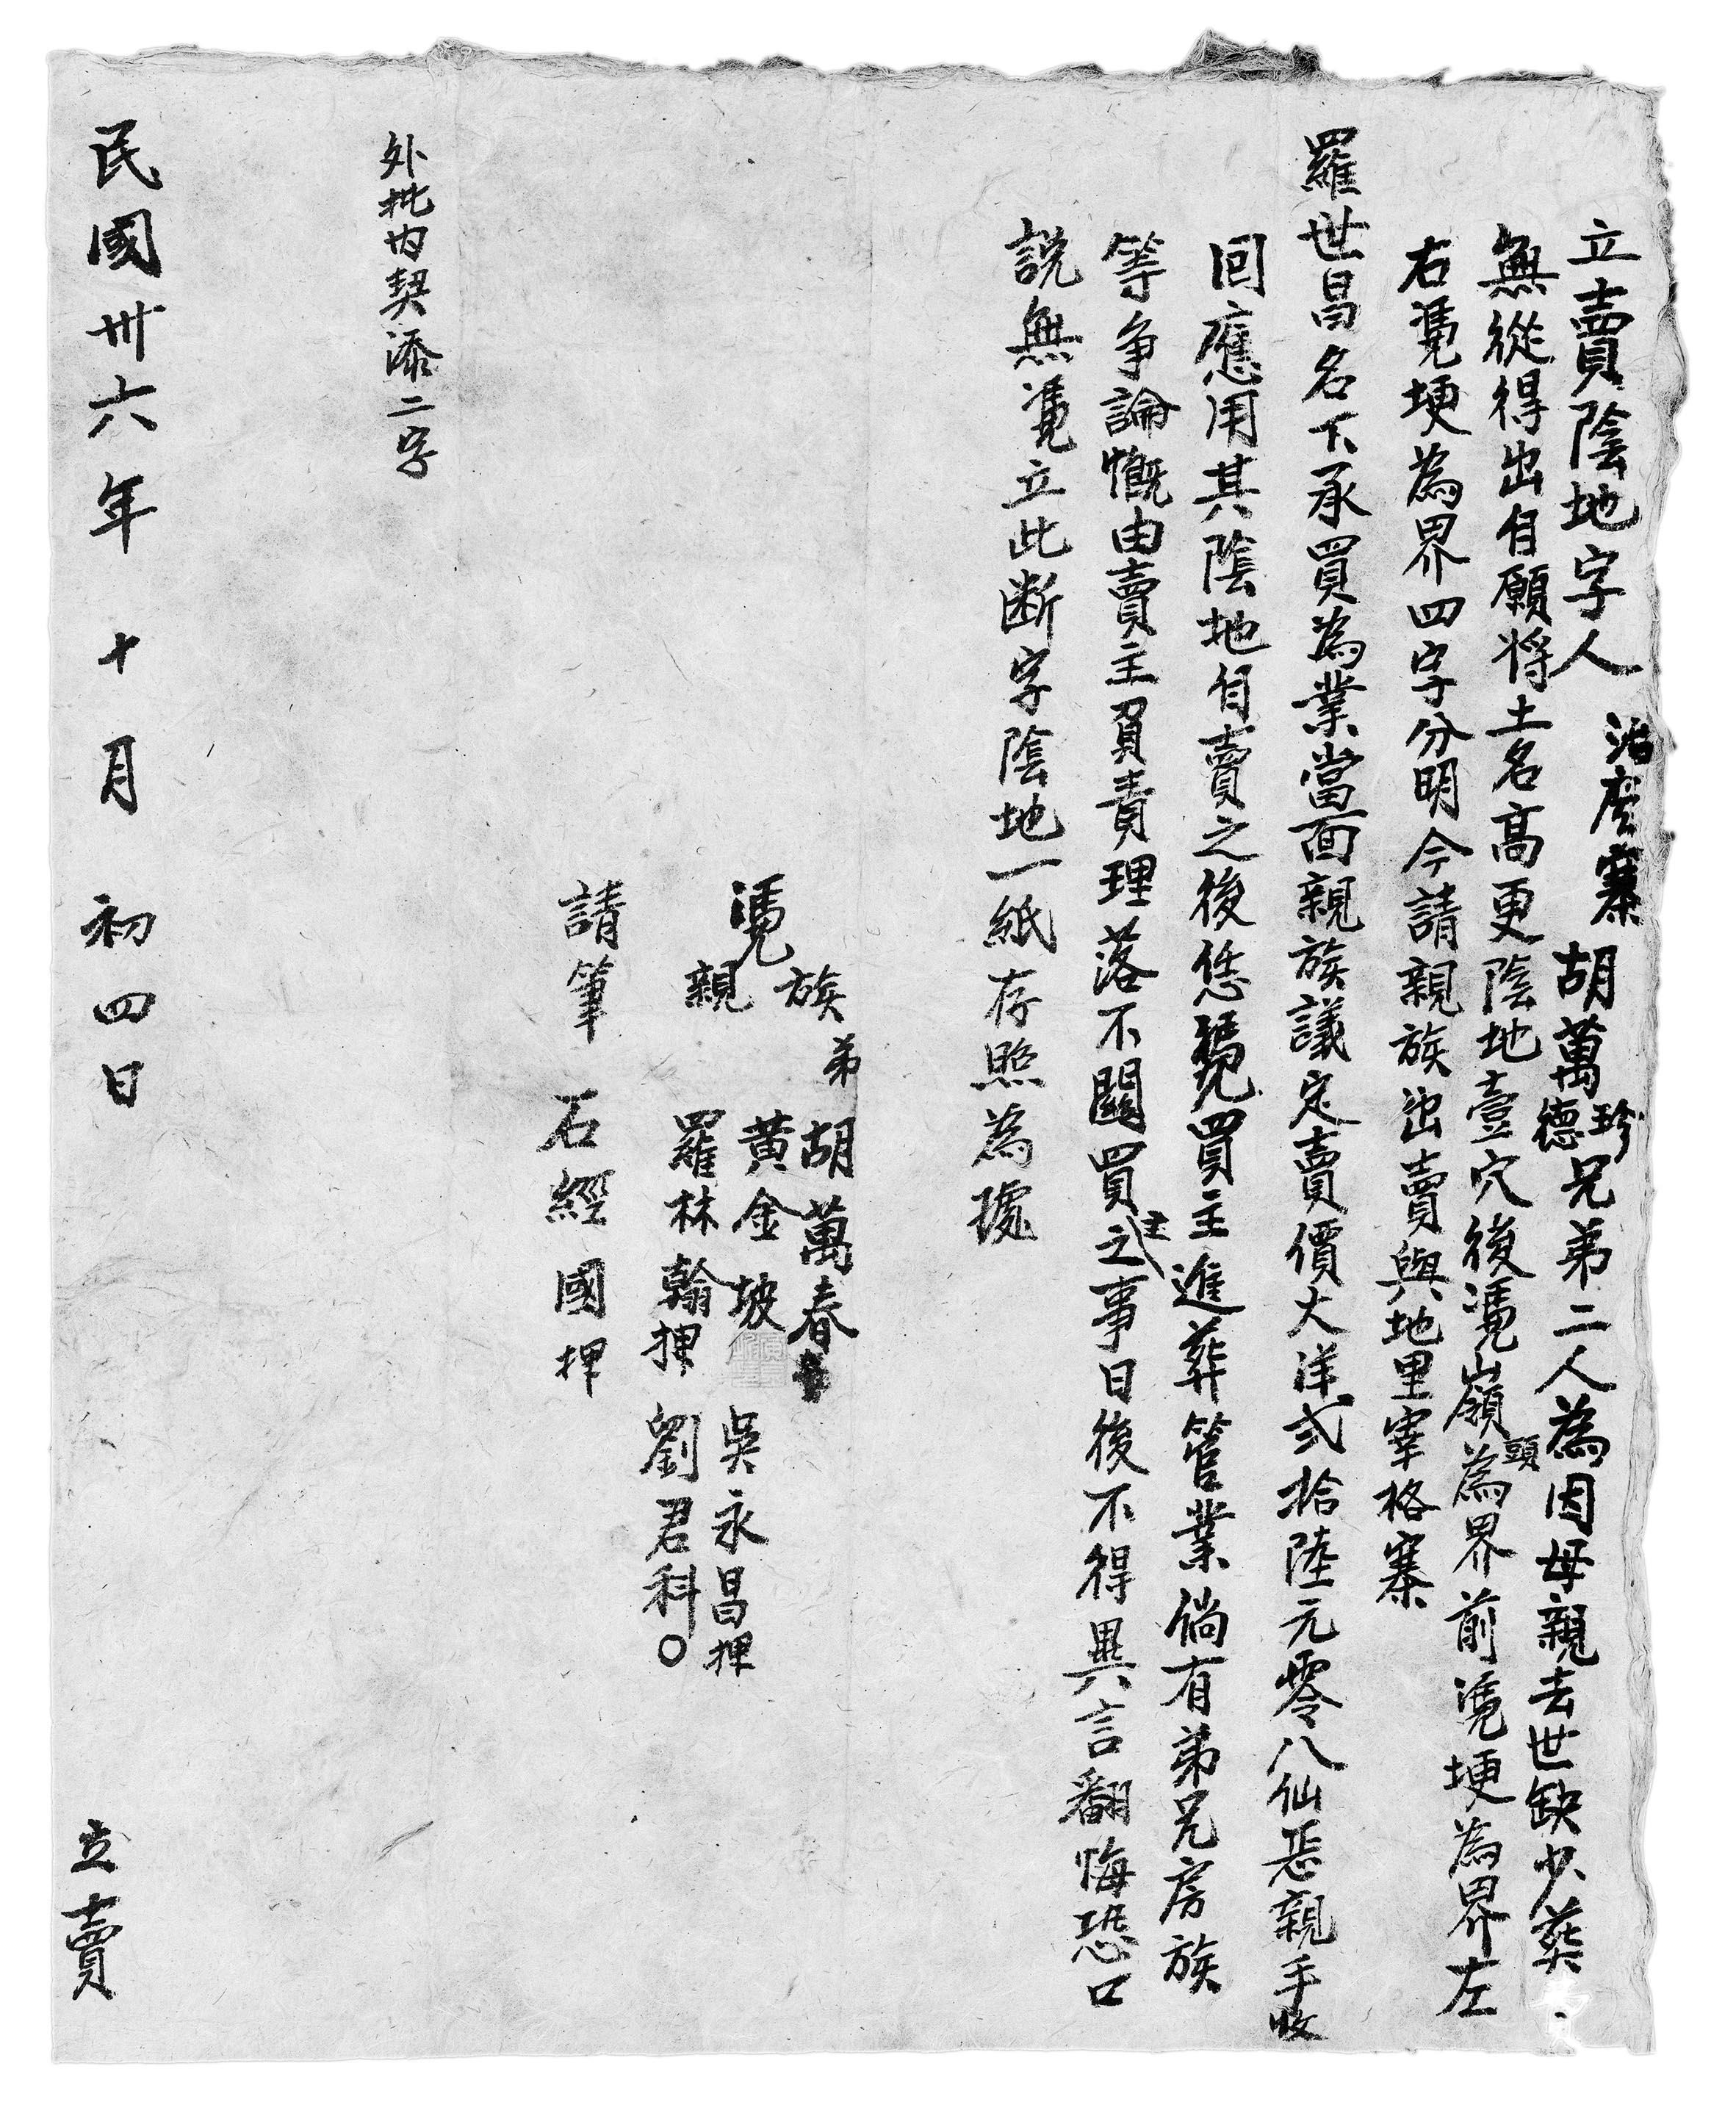 立賣陰地字人治麿寨胡萬珍德兄弟二人為因母親去世缺少葬費
無從得出自願將土名高更陰地壹穴後凴嶺頭為界前凴埂為界左
右凴埂為界四字分明今請親族出賣與地里宰格寨
羅世昌名下承買為業當面親族議定賣價大洋弍拾陸元零八仙恁親手收
回應用其陰地自賣之後恁凴買主進葬管業倘有弟兄房族
等争論慨由賣主負責理落不關買主之事日後不得異言翻悔恐口
説無凴立此断字陰地一紙存照為據
凴
族弟胡萬春
黄金坡 吳永昌押
親
羅林翰押 劉君科〇
請筆 石經國押
外批内契添二字
民國卅六年十月初四日 立賣